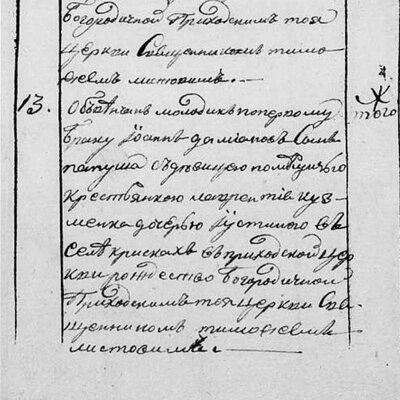 Богородичной Приходскимъ тоя
церкви Священникомъ тимо
ѳеемъ листовимъ. —
13. Обвѣнчанъ молодикъ по первому
браку Іоаннъ даміановъ Сала
патуша съ дѣвицею помѣщичьего
крестьянкою лаврентія куз-
менка дочерью Іустиною въ
селѣ крискахъ въ приходской цер
кви рождество Богородичной
Приходскимъ тоя церкви Свя-
щенникомъ тимоѳеемъ
листовимъ. —
того